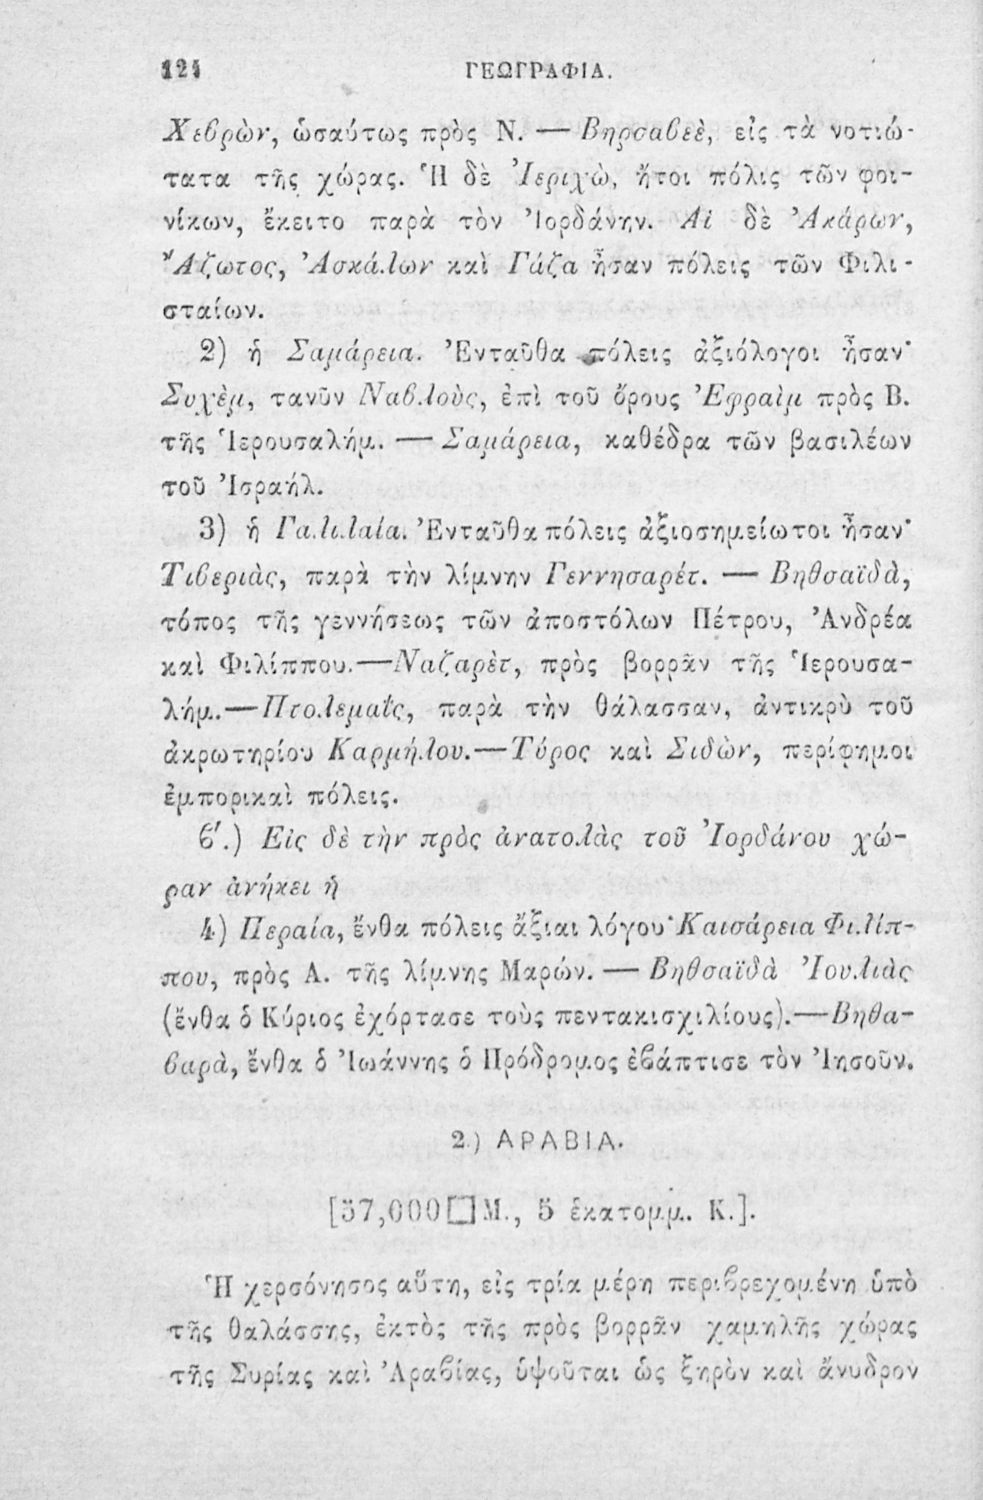 124 ΓΕΩΓΡΑΦΙΑ.
Χεβρὼν, ὡσαύτως πρὸς Ν. — Βηρσαβεὲ, εἰς τὰ νοτιώ-
τατα τῆς χώρας. Ἡ δὲ Ἰεριχὼ, ἤτοι πόλις τῶν φοι-
νίκων, ἔκειτο παρὰ τὸν Ἰορδάνην. Αἱ δὲ Ἀκάρων,
Ἄζωτος, Ἀσκάλων καὶ Γάζα ἦσαν πόλεις τῶν Φιλι-
σταίων.
2) ἡ Σαμάρεια. Ἐνταῦθα πόλεις ἀξιόλογοι ἦσαν·
Συχὲμ, τανῦν Ναβλοὺς, ἐπὶ τοῦ ὄρους Ἐφραὶμ πρὸς Β.
τῆς Ἱερουσαλήμ. — Σαμάρεια, καθέδρα τῶν βασιλέων
τοῦ Ἰσραήλ.
3) ἡ Γαλιλαία. Ἐνταῦθα πόλεις ἀξιοσημείωτοι ἦσαν·
Τιβεριὰς, παρὰ τὴν λίμνην Γεννησαρέτ. — Βηθσαϊδὰ,
τόπος τῆς γεννήσεως τῶν ἀποστόλων Πέτρου, Ἀνδρέα
καὶ Φιλίππου.—Ναζαρὲτ, πρὸς βορρᾶν τῆς Ἱερουσα-
λήμ.—Πτολεμαῒς, παρὰ τὴν θάλασσαν, ἀντικρὺ τοῦ
ἀκρωτηρίου Καρμήλου.—Τύρος καὶ Σιδὼν, περίφημοι
ἐμπορικαὶ πόλεις.
ϐ′.) Εἰς δὲ τὴν πρὸς ἀνατολὰς τοῦ Ἰορδάνου χώ-
ραν ἀνήκει ἡ
4) Περαία, ἔνθα πόλεις ἄξιαι λόγου· Καισάρεια Φιλίπ-
που, πρὸς Α. τῆς λίμνης Μαρών. — Βηθσαϊδὰ Ἰουλιὰς
(ἔνθα ὁ Κύριος ἐχόρτασε τοὺς πεντακισχιλίους).—Βηθα-
βαρὰ, ἔνθα ὁ Ἰωάννης ὁ Πρόδρομος ἐβάπτισε τὸν Ἰησοῦν.
2.) ΑΡΑΒΙΑ.
[57,000□Μ., 5 ἑκατομμ. Κ.].
Ἡ χερσόνησος αὕτη, εἰς τρία μέρη περιβρεχομένη ὑπὸ
τῆς θαλάσσης, ἐκτὸς τῆς πρὸς βορρᾶν χαμηλῆς χώρας
τῆς Συρίας καὶ Ἀραβίας, ὑψοῦται ὡς ξηρὸν καὶ ἄνυδρον